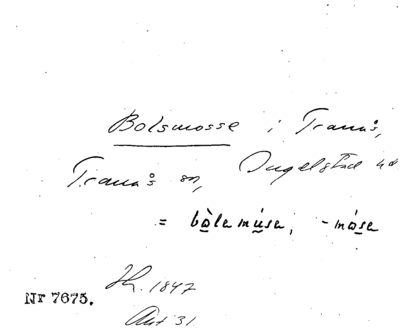 Bolsmosse i Tranås,
Tranås sn, Ingelstad hd
= bòlamúsa, -mósa
Nr 7675.
1847
Ant 31